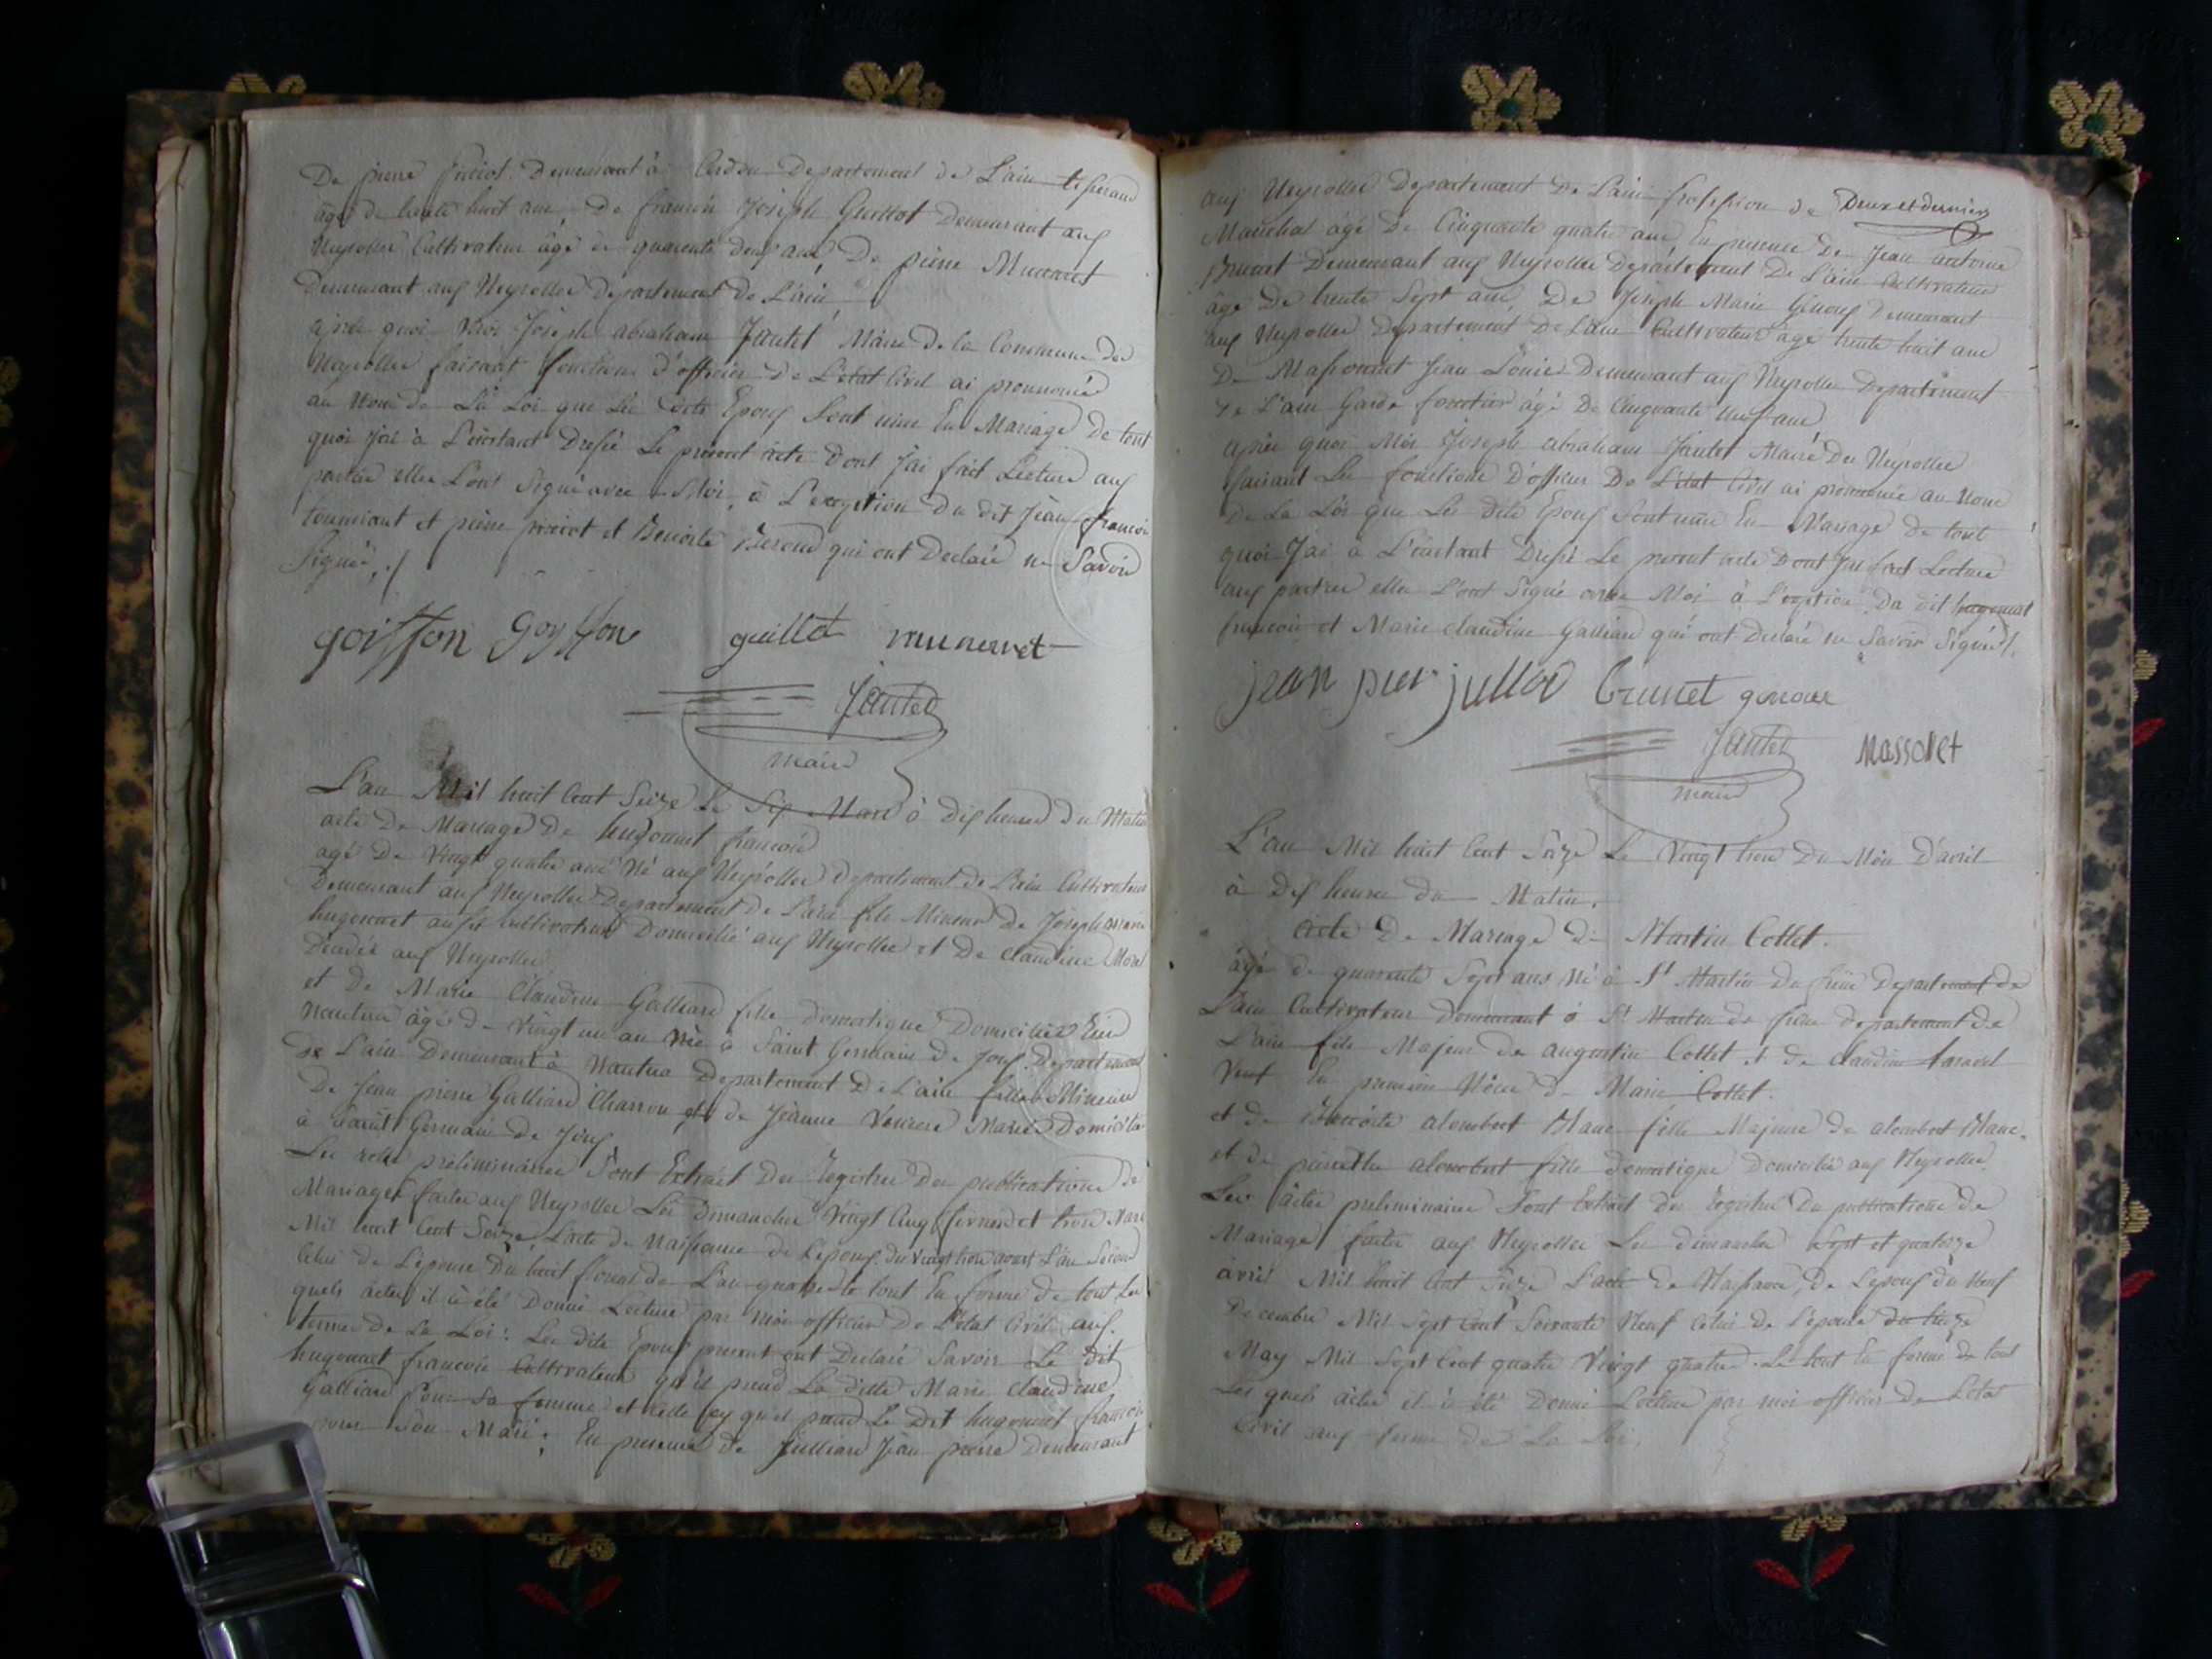 De pierre Demeurant à Cerdon Departement de L'ain
âgé de trente huit ans, De francois Joseph Guillot Demeurant aux
Neyrolles Cultivateur âgé de quarante deux ans De pierre Muneret
Demeurant aux Neyrolles Departement de L'ain
après quoi Moi Joseph abraham Jantet Maire de la Commune des
Neyrolles faisant fonctions d'officier de L'etat Civil ai prononcé
au Nom de La Loi que Les dits Epoux Sont unis En Mariage De tout
quoi J'ai à L'instant Dressé Le present acte Dont J'ai fait Lecture aux
parties elles L'ont Signé avec Moi, à L'exception du dit Jean francois
et pierre et Benoite qui ont Declaré ne Savoir
Signé ./.
goiffon Goyffon guillot muneret
Jantet
maire
L'an Mil huit Cent Seize Le Six Mars à Dix heures du Matin
acte De Mariage De hugonnet francois
agé De Vingt quatre ans Né aux Neyrolles departement de L'ain Cultivateur
Demeurant aux Neyrolles Departement de L'ain fils Mineur de Joseph marie
hugonnet aussi Cultivateur Domicilié aux Neyrolles et De claudine
Décédée aux Neyrolles
et De Marie Claudine Galliard fille domestique Domiciliée
Nantua âgée de Vingt un an Née à Saint Germain de Joux Departement
De L'ain Demeurant à Nantua Departement De L'ain fille Mineure
De Jean pierre Galliard Charron et de Jeanne Mariés Domiciliés
à Saint Germain de Joux
Les actes préliminaires Sont Extrait des registres des publications de
Mariages faites aux Neyrolles Les dimanches Vingt Cinq fevrier et trois Mars
Mil huit Cent Seize L'acte de Naissance de L'epoux du Vingt trois aout L'an Second
Celui de L'epouse Du huit floreal de L'an quatre le tout En forme de tout Les
quels actes il à été Donné Lecture par moi officier De L'etat Civil aux
termes De La Loi: Les dits Epoux present ont Declaré Savoir Le dit
hugonnet francois Cultivateur qu'il prend La ditte Marie Claudine
Galliard pour Sa femme et celle cy qu'el prend Le Dit hugonnet francois
pour Son Mari; En presence de Julliard Jean pierre Demeurant
aux Neyrolles Departement De L'ain profession de Deux et dernier
Marechal âgé De Cinquante quatre ans, En presence De Jean antoine
Brunet Demeurant aux Neyrolles Departement De L'ain Cultivateur
âgé De trente Sept ans, De Joseph Marie Genoux Demeurant
aux Neyrolles Departement De L'ain Cultivateur âgé trente huit ans
De Massonnet Jean Louis Demeurant aux Neyrolles Departement
De L'ain Garde forestier âgé De Cinquante ans
après quoi Moi Joseph abraham Jantet Maire Des Neyrolles
faisant Les fonctions D'officier De L'etat Civil ai prononcé au Nom
De La Loi que Les dits Epoux Sont unis En Mariage De tout
quoi J'ai à L'instant Dressé Le present acte Dont J'ai fait Lecture
aux parties elles L'ont Signé avec Moi à L'exeption Du dit hugonnet
francois et Marie claudine Galliard qui ont Declaré ne Savoir Signé ./.
jean pier julliar Brunet genoux
Jantet Massonet
maire
L'an Mil huit Cent Seize Le Vingt trois Du Mois D'avril
à Dix heures du Matin.
acte De Mariage de Martin Collet.
âgé de quarante Sept ans Né à St Martin Du frêne Departement de
L'ain Cultivateur Demeurant à St Martin du frene departement de
L'ain fils Majeur de augustin Collet et de Claudine
Veuf En premiere Nôces de Marie Collet.
et de Benoite alombert Blanc fille Majeure de alombert Blanc
et de pierrette alombert fille domestique Domiciliée aux Neyrolles
Les actes preliminaires Sont Extrait des registres Des publications de
Mariage faites aux Neyrolles Les dimanches Sept et quatorze
avril Mil huit Cent Seize L'acte de Naissance, De L'epoux du Neuf
Decembre Mil Sept Cent Soixante Neuf Celui de L'epouse du treize
May Mil Sept Cent quatre Vingt quatre. Le tout En forme De tout
Les quels actes il à été Donné Lecture par moi officier De L'etat
Civil aux terme de La Loi.